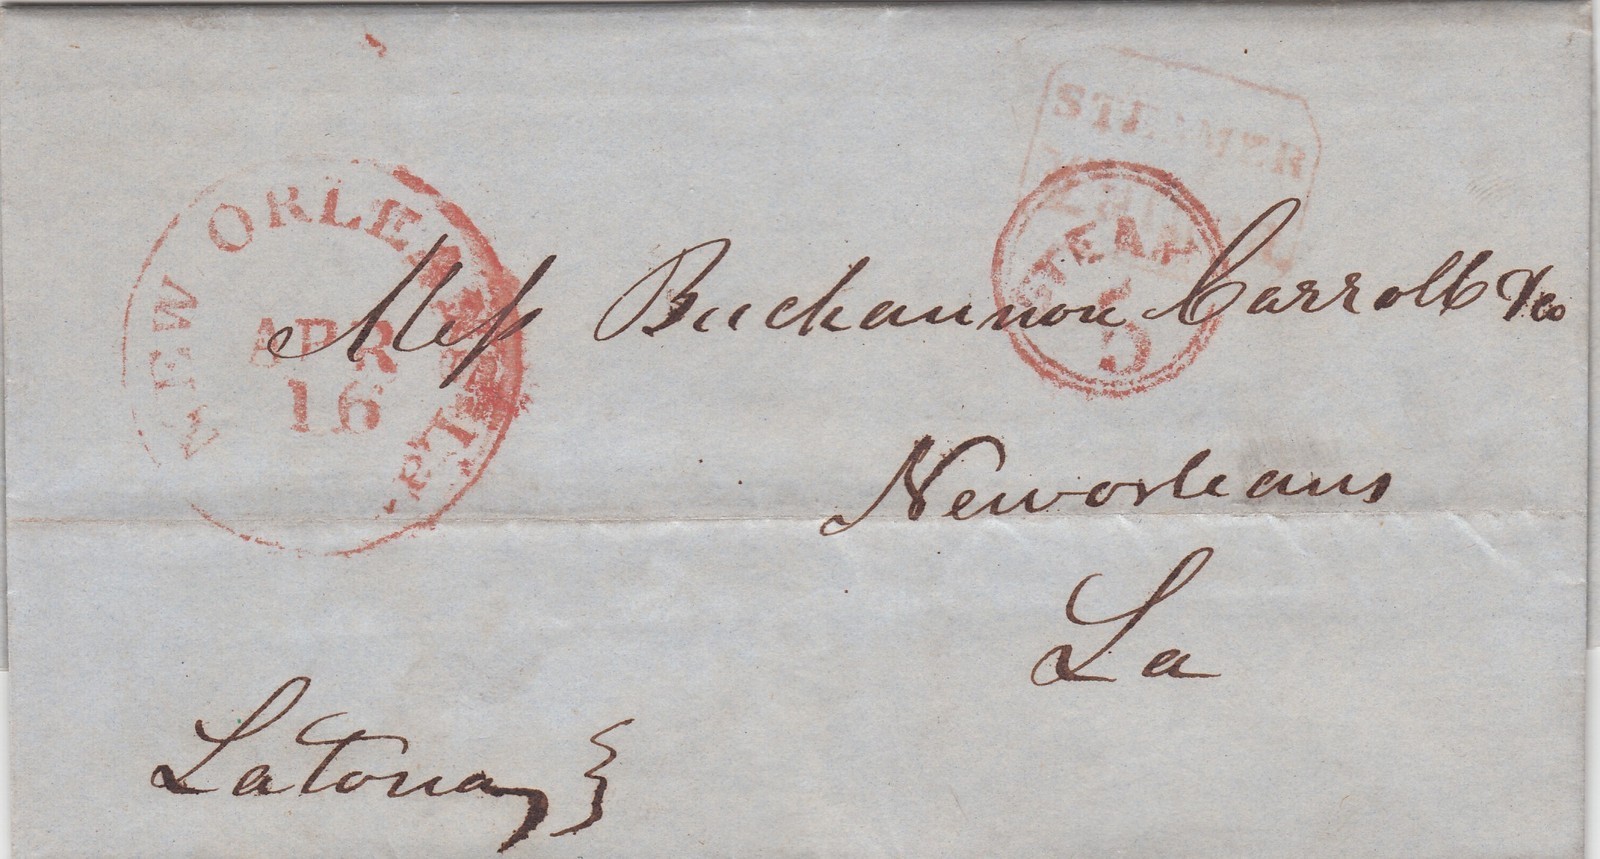 NEW ORLEANS
La.
APR
16
STEAMER
STEAM
5
Mess Buchannon Carroll & Co
Neworleans
La
Latona